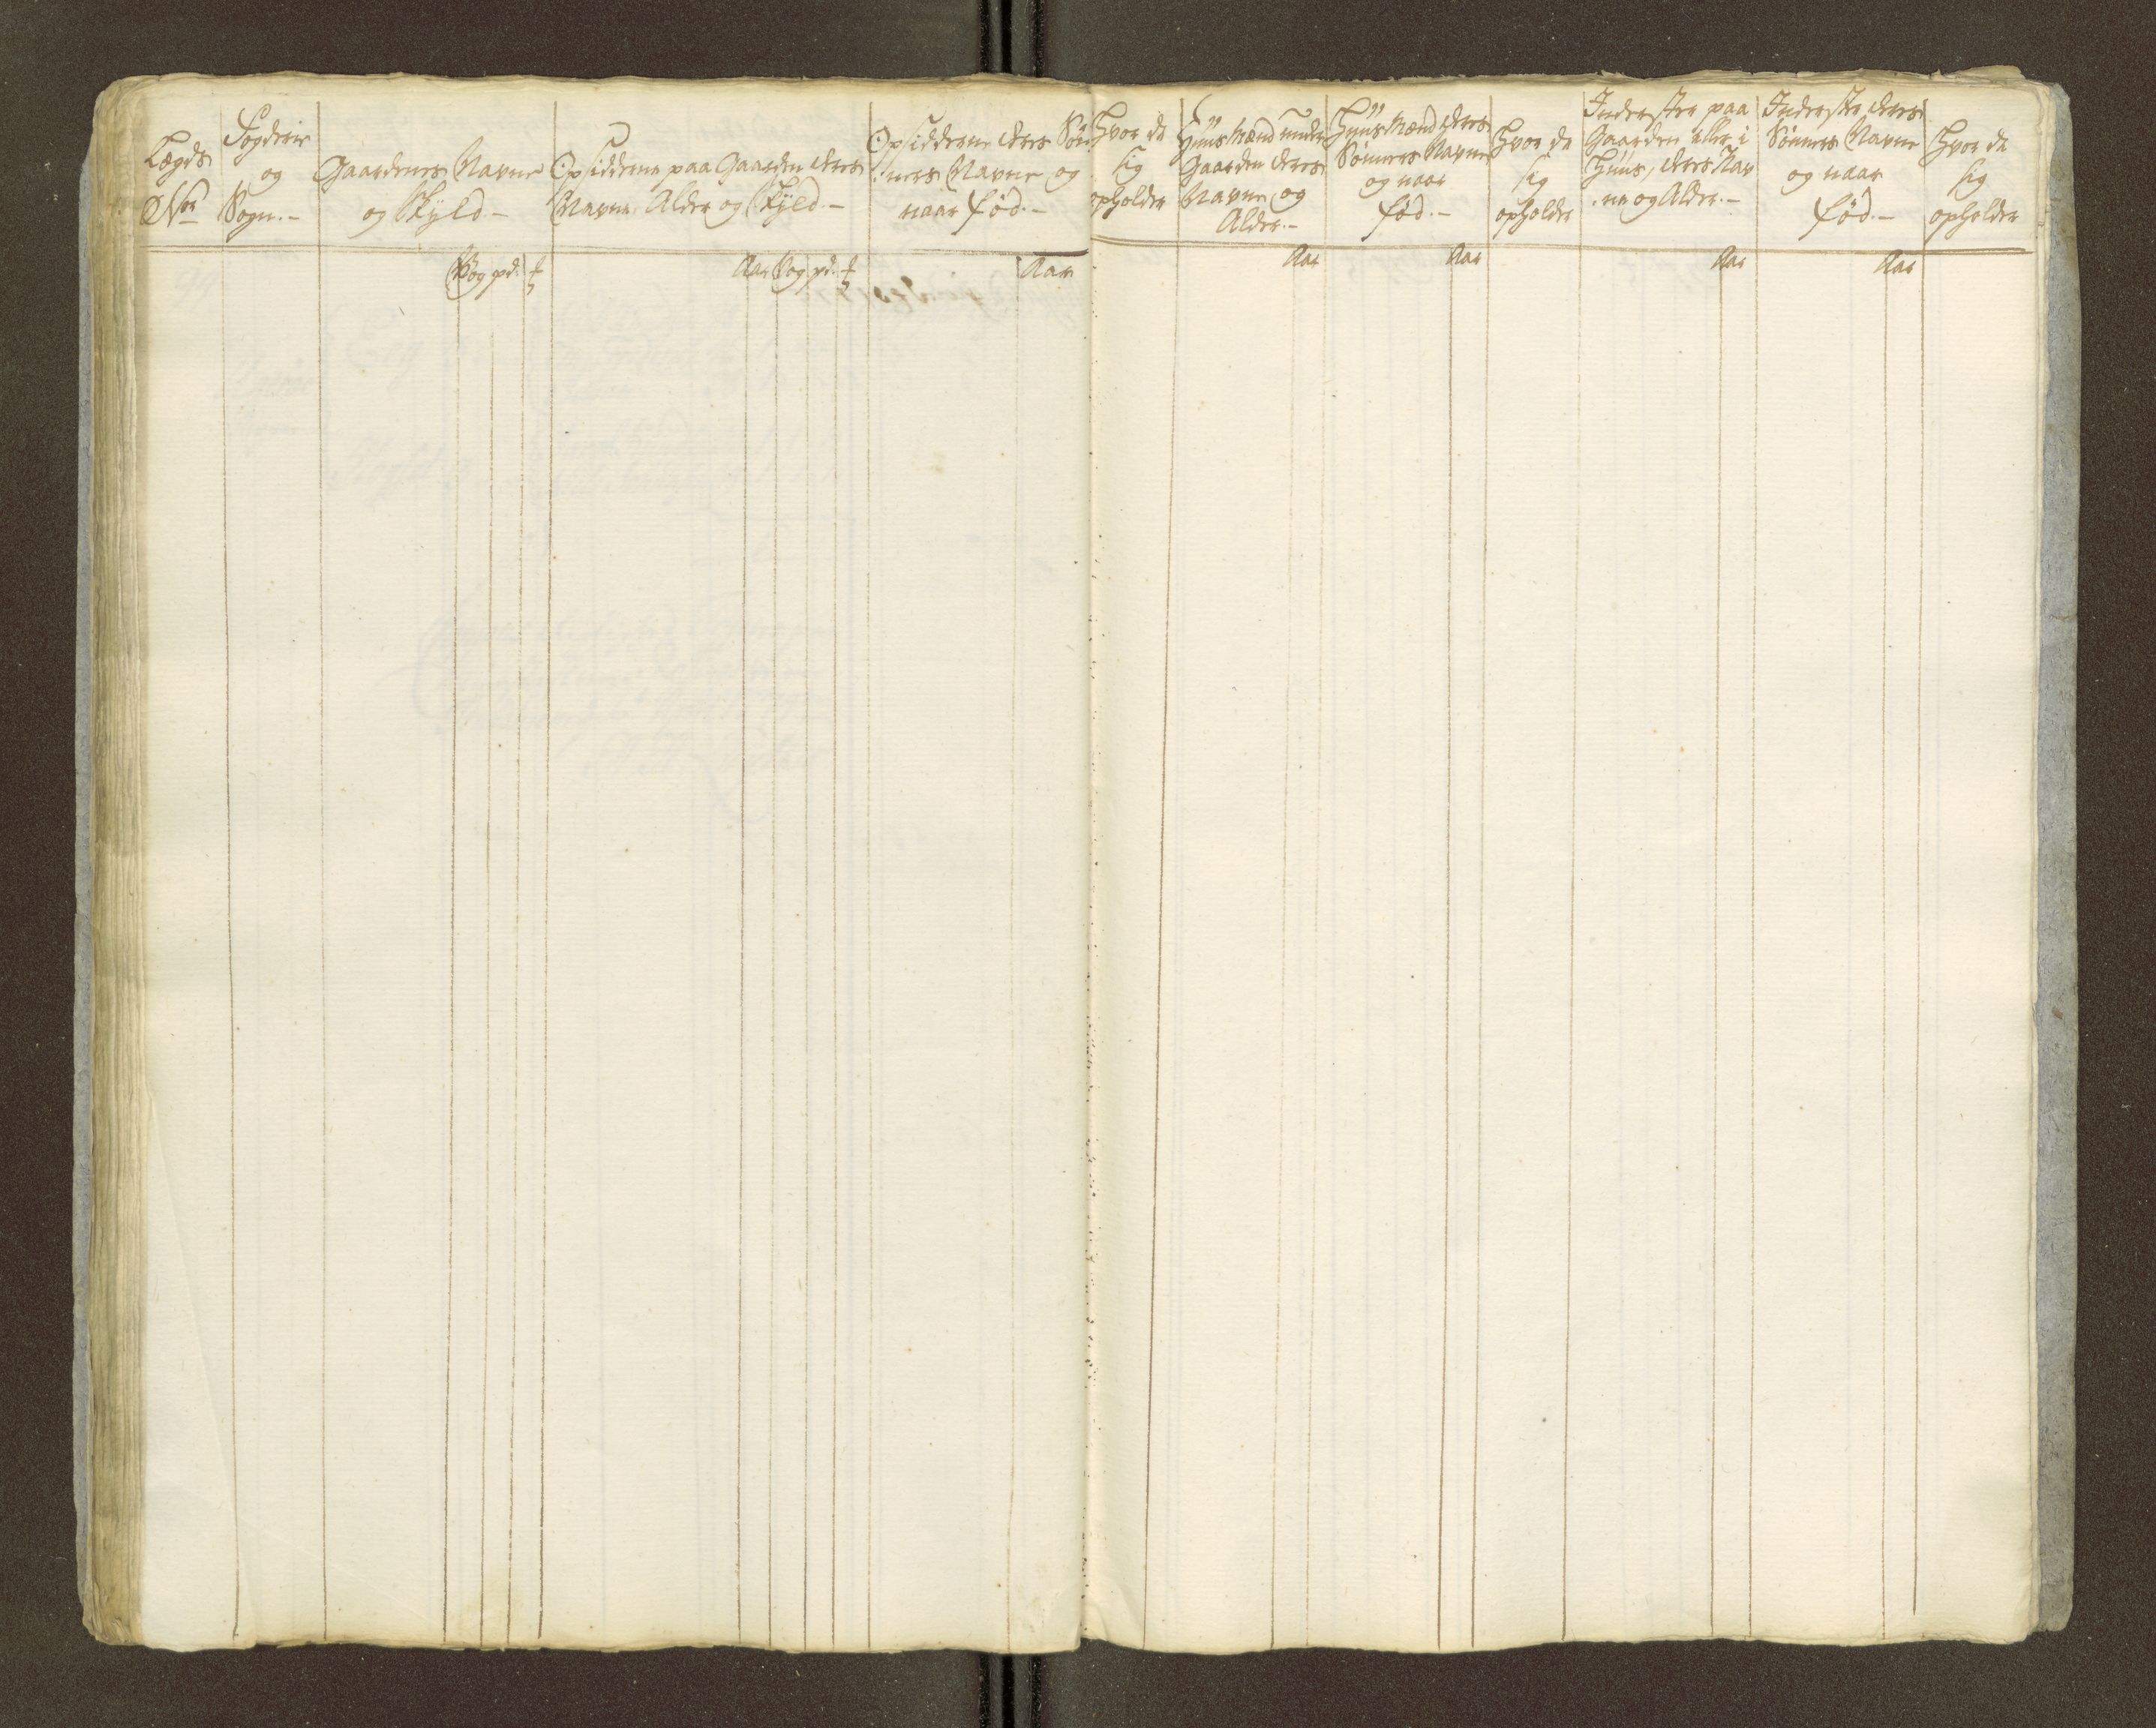 Lægds
No:
Fogderie
og
Sogn.-
Gaardenes Navne
og Skyld -
Opsiddern paa Gaarden deres
Navne Alder og Skyld.-
Opsidderne deres Søn
:ners Navne og
naar fød.-
Hvor de
sig
opholder
Huusmænd under
Gaarden deres
Navne og
Alder.-
Huusmænd deres
Sønners Navne
og naar
fød.-
Hvor de
sig
opholder
Inderster paa
Gaarden eller i
Huus, deres Nav
:ne og Alder.-
Inderste deres
Sønners Navne
og naar
fød.-
Hvor de
sig
opholder
Vog pd:
Aar Vog pd:
Aar
Aar
Aar
Aar
Aar